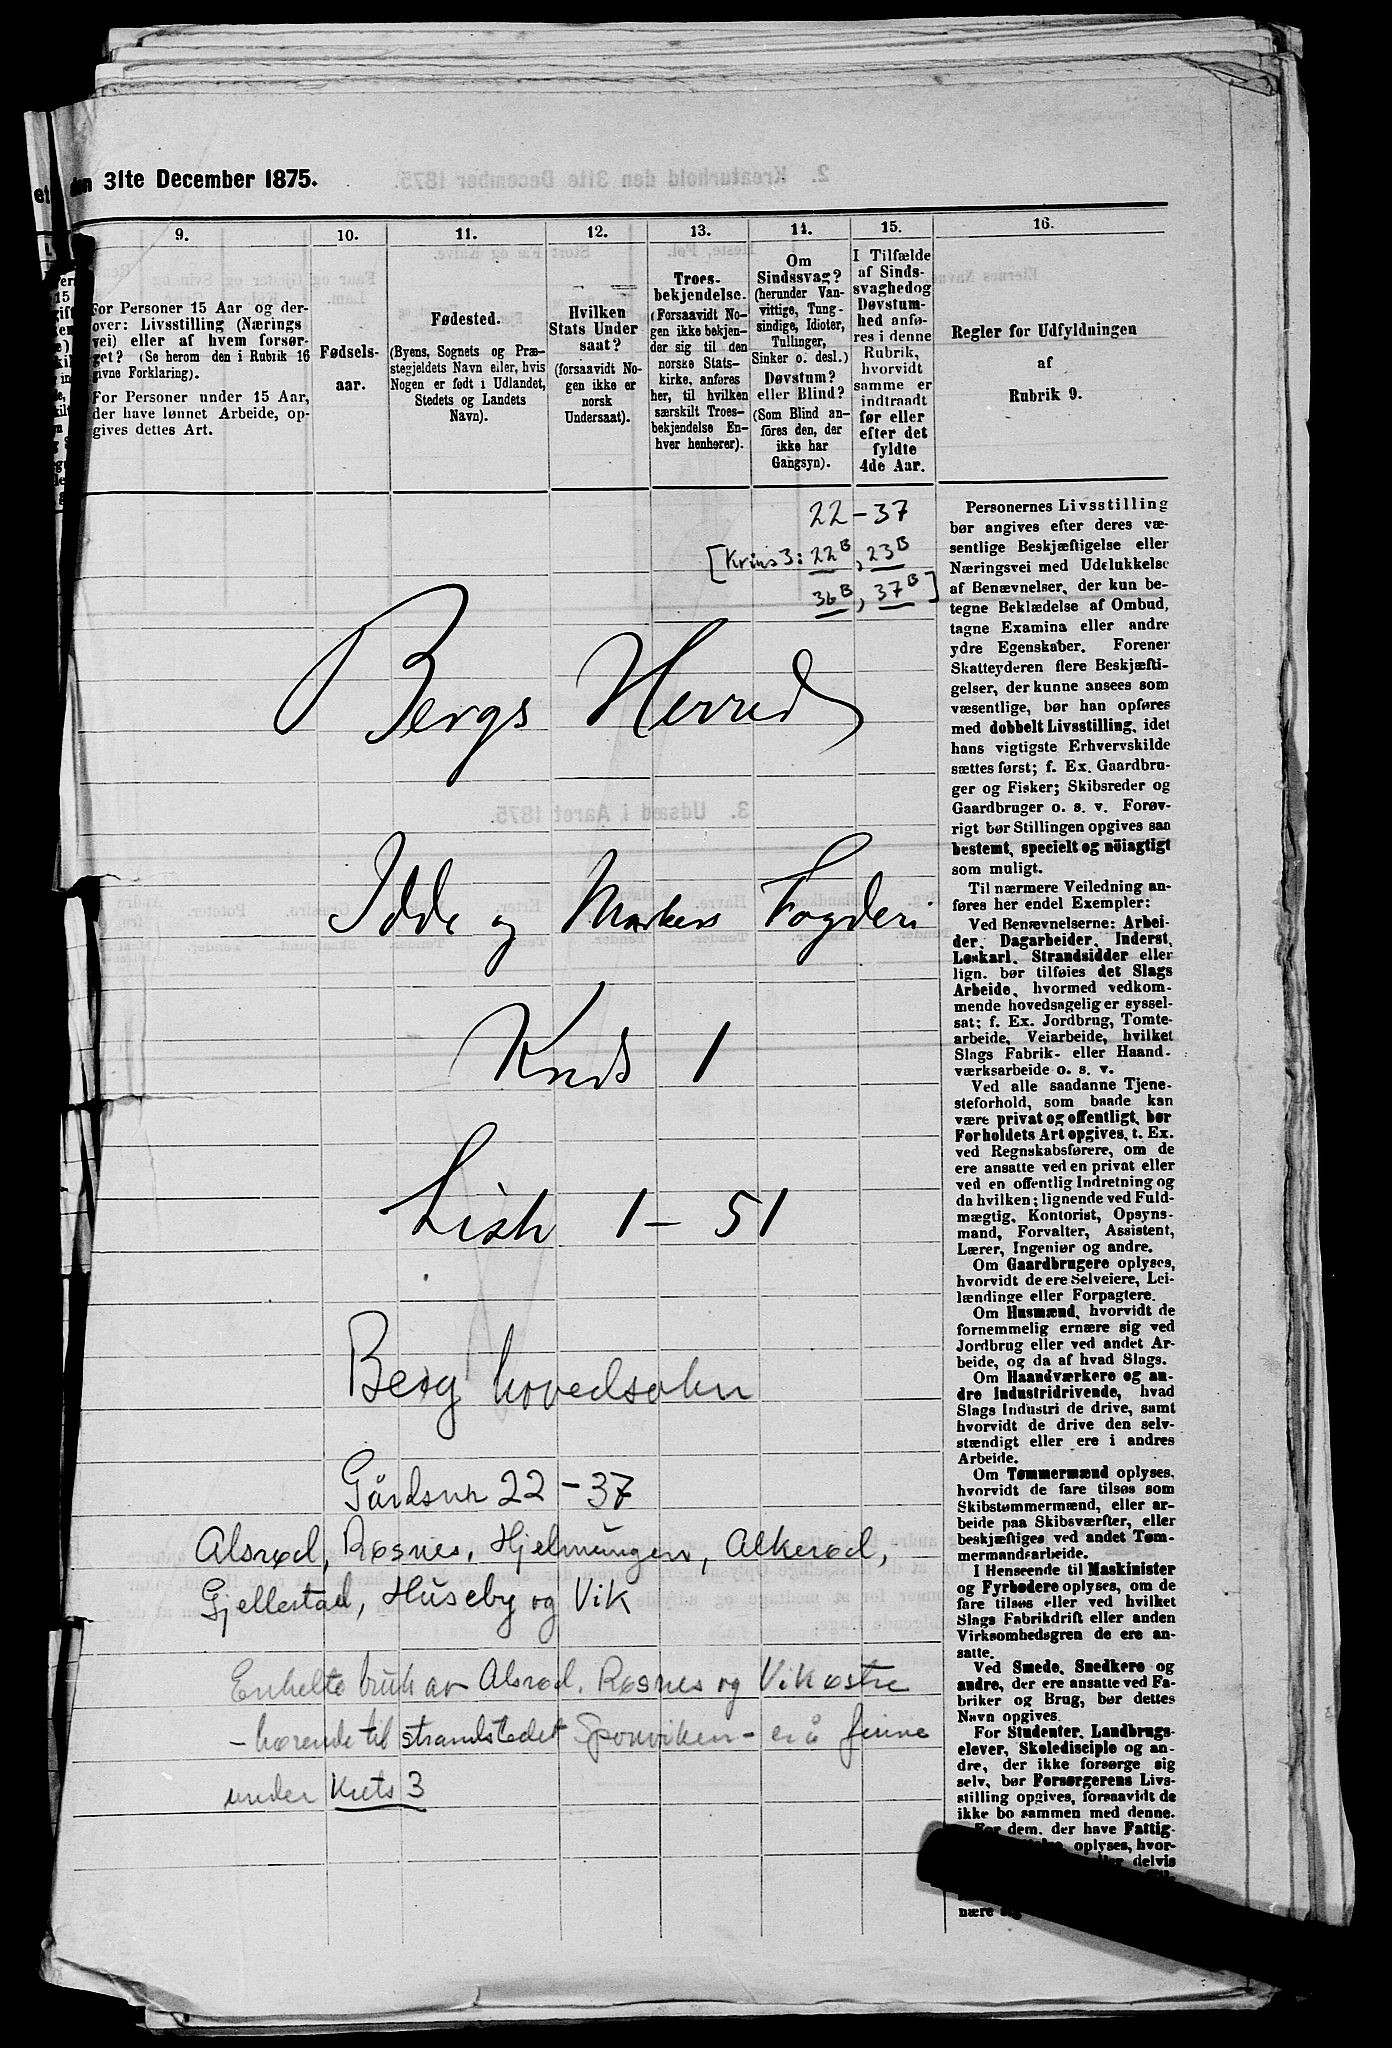 den 31te December 1875.
9.
10.
11.
12.
13.
14.
15.
16.
For Personer 15 Aar og der-
over: Livsstilling (Nærings
vei) eller af hvem forsør-
get? (Se herom den i Rubrik 16
givne Forklaring).
For Personer under 15 Aar,
der have lønnet Arbeide, op-
gives dettes Art.
Fødsels-
aar.
Fødested.
(Byens, Sognets og Præ-
stegjeldets Navn eller, hvis
Nogen er født i Udlandet,
Stedets og Landets
Navn).
Hvilken
Stats Under
saat?
(forsaavidt No-
gen ikke er
norsk
Undersaat).
Troes-
bekjendelse.
(Forsaavidt No-
gen ikke bekjen-
der sig til den
norske Stats-
kirke, anføres
her, til hvilken
særskilt Troes-
bekjendelse En-
hver henhører).
Om
Sindssvag?
(herunder Van-
vittige, Tung-
sindige, Idioter,
Tullinger,
Sinker o. desl.)
Døvstum?
eller Blind?
(Som Blind an-
föres den, der
ikke har
Gangsyn).
I Tilfælde
af Sinds-
svaghedog
Døvstum-
hed anfø-
res i denne
Rubrik,
hvorvidt
samme er
indtraadt
før eller
efter det
fyldte
4de Aar.
Regler for Udfyldningen
af
Rubrik 9.
22-37
[Krins 3: 22B, 23B
36B, 37B]
Bergs Herred
Idde og Markers Fogderi
Kreds 1
Liste 1-51
Berg hovedsokn
Gårdsnr 22-37
Alsrød, Røsnes, Hjelmungen, Alkerød,
Gjellestad, Huseby og Vik
Enkelte bruk av Alsrød, Røsnes og Vik østre
- hørende til strandstedet Sponviken - er å finne
under Krets 3
Personernes Livsstilling
bør angives efter deres væ-
sentlige Beskjæftigelse eller
Næringsvei med Udelukkelse
af Benævnelser, der kun be-
tegne Beklædelse af Ombud,
tagne Examina eller andre
ydre Egenskaber. Forener
Skatteyderen flere Beskjæfti-
gelser, der kunne ansees som
væsentlige, bør han opføres
med dobbelt Livsstilling, idet
hans vigtigste Erhvervskilde
sættes først; f. Ex. Gaardbru-
ger og Fisker; Skibsreder og
Gaardbruger o. s. v. Forøv-
rigt bør Stillingen opgives saa
bestemt, specielt og nöiagtigt
som muligt.
Til nærmere Veiledning an-
føres her endel Exempler:
Ved Benævnelserne: Arbei-
der, Dagarbeider, Inderst,
Løskarl, Strandsidder eller
lign. bør tilføies det Slags
Arbeide, hvormed vedkom-
mende hovedsagelig er syssel-
sat; f. Ex. Jordbrug, Tomte-
arbeide, Veiarbeide, hvilket
Slags Fabrik- eller Haand-
værksarbeide o. s. v.
Ved alle saadanne Tjene-
steforhold, som baade kan
være privat og offentligt, bør
Forholdets Art opgives, t. Ex.
ved Regnskabsførere, om de
ere ansatte ved en privat eller
ved en offentlig Indretning og
da hvilken; lignende ved Fuld-
mægtig, Kontorist, Opsyns-
mand, Forvalter, Assistent,
Lærer, Ingeniør og andre.
Om Gaardbrugere oplyses,
hvorvidt de ere Selveiere, Lei-
lændinge eller Forpagtere.
Om Husmænd, hvorvidt de
fornemmelig ernære sig ved
Jordbrug eller ved andet Ar-
beide, og da af hvad Slags.
Om Haandværkere og an-
dre Industridrivende, hvad
Slags Industri de drive, samt
hvorvidt de drive den selv-
stændigt eller ere i andres
Arbeide.
Om Tømmermænd oplyses,
hvorvidt de fare tilsøs som
Skibstømmermænd, eller ar-
beide paa Skibsværfter, eller
beskjæftiges ved andet Tøm-
mermandsarbeide.
I Henseende til Maskinister
og Fyrbødere oplyses, om de
fare tilsøs eller ved hvilket
Slags Fabrikdrift eller anden
Virksomhedsgren de ere an-
satte.
Ved Smede, Snedkere og
andre, der ere ansatte ved Fa-
briker og Brug, bør dettes
Navn opgives.
For Studenter, Landbrugs-
elever, Skoledisciple og an-
dre, der ikke forsørge sig
selv, bør Forsørgerens Livs-
stilling opgives, forsaavidt de
ikke bo sammen med denne.
For dem, der have Fattig-
oplyses, hvor-
eller delvis
nære sig